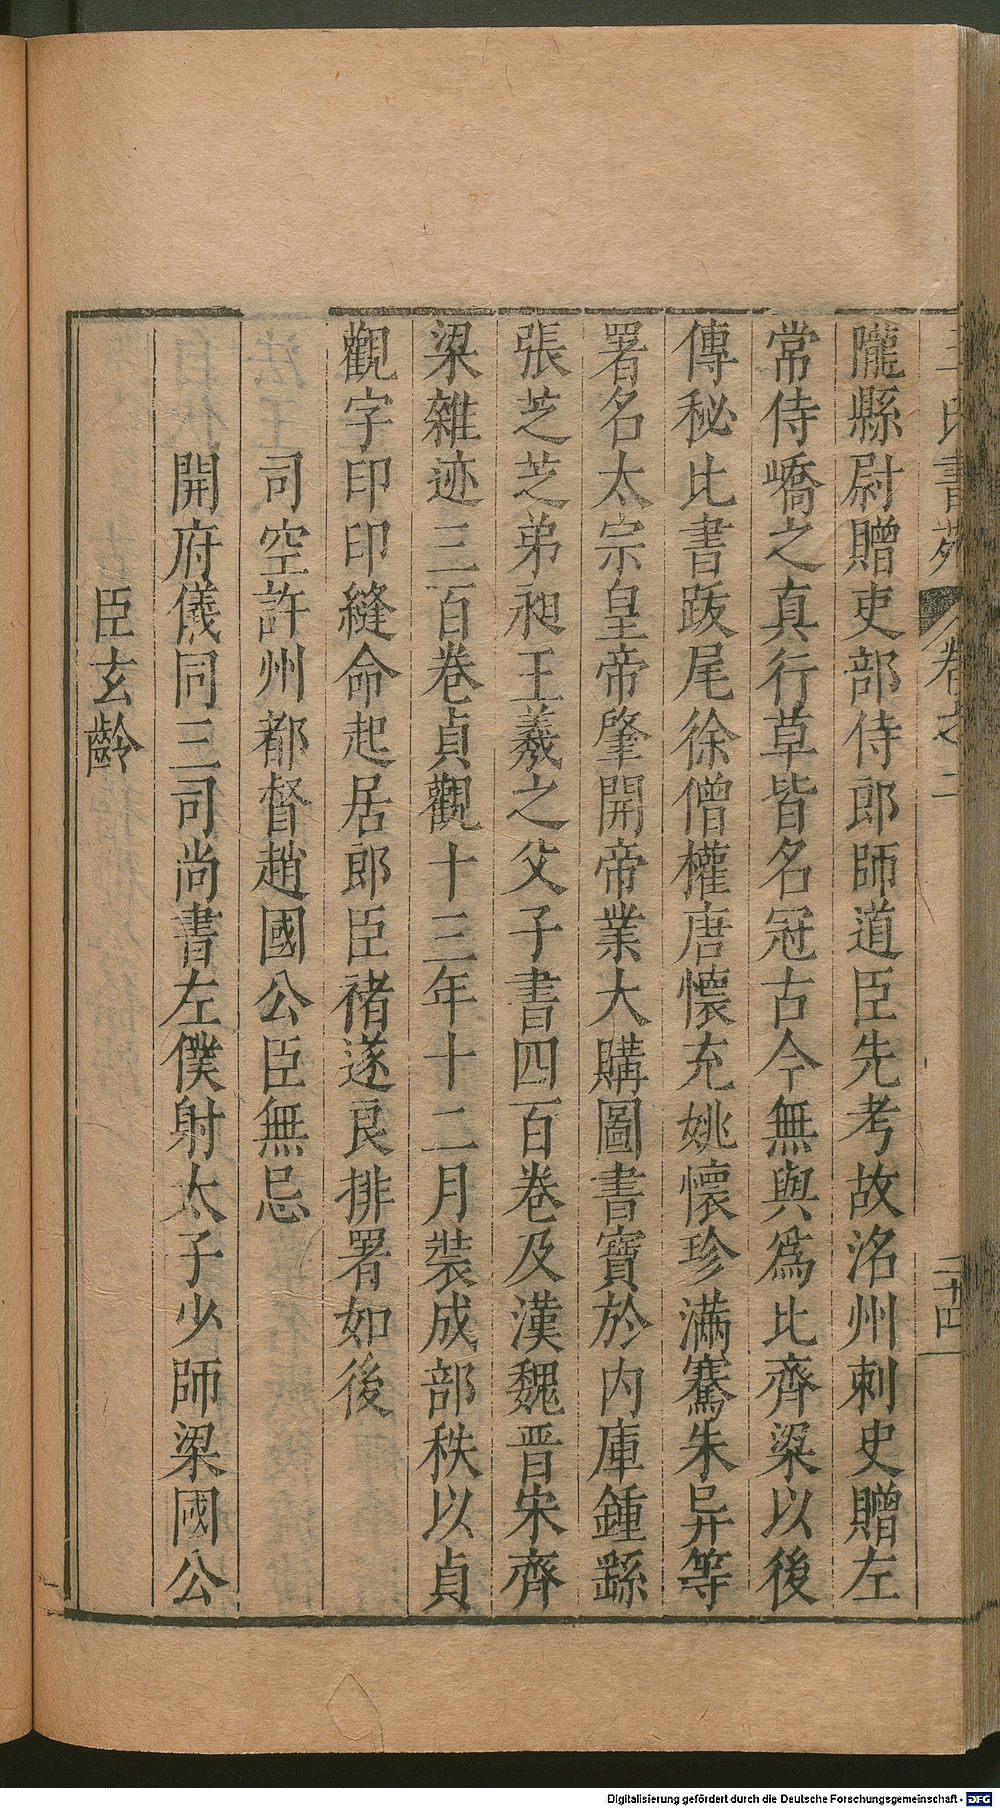 王氏書苑 卷之二 二十四
隴縣尉贈吏部侍郎師道臣先考故洺州刺史贈左
常侍嶠之真行草皆名冠古今無與爲比齊梁以後
傳秘比書跋尾徐僧權唐懷充姚懷珍滿騫朱异等
署名太宗皇帝肇開帝業大購圖書寶於内庫鍾繇
張芝芝弟昶王羲之父子書四百卷及漢魏晋宋齊
梁雜迹三百卷貞觀十三年十二月裝成部秩以貞
觀字印印縫命起居郎臣褚遂良排署如後
司空許州都督趙國公臣無忌
開府儀同三司尚書左僕射太子少師梁國公
臣玄齡
Digitalisierung gefördert durch die Deutsche Forschungsgemeinschaft - DFG